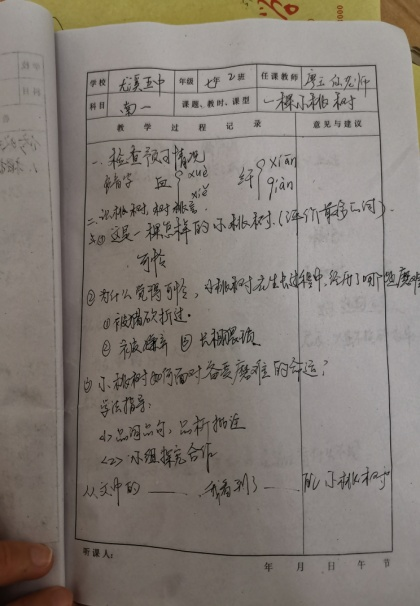 学校 大溪五中 年级 七年2班 任课教师 老师
科目 南一 课题、教时、课型 一棵小桃树
教 学 过 程 记 录 意 见 与 建 议
一、检查预习情况
多音字 血 { xuè xiě 纤 { xiān qiàn
二、
① 这是一棵怎样的小桃树?
可怜
② 为什么觉得可怜,小桃树在生长过程中,经历了哪些磨难
① 被猪砍折过.
② 被嫌弃 ③ 长相猥琐
③ 小桃树如何面对备受磨难的命运?
学法指导:
<1> 品词品句,品析批注
<2> 小组探究合作
从文中的 ____ 我看到了 ____ 的小桃树
听课人: 年 月 日 午 节